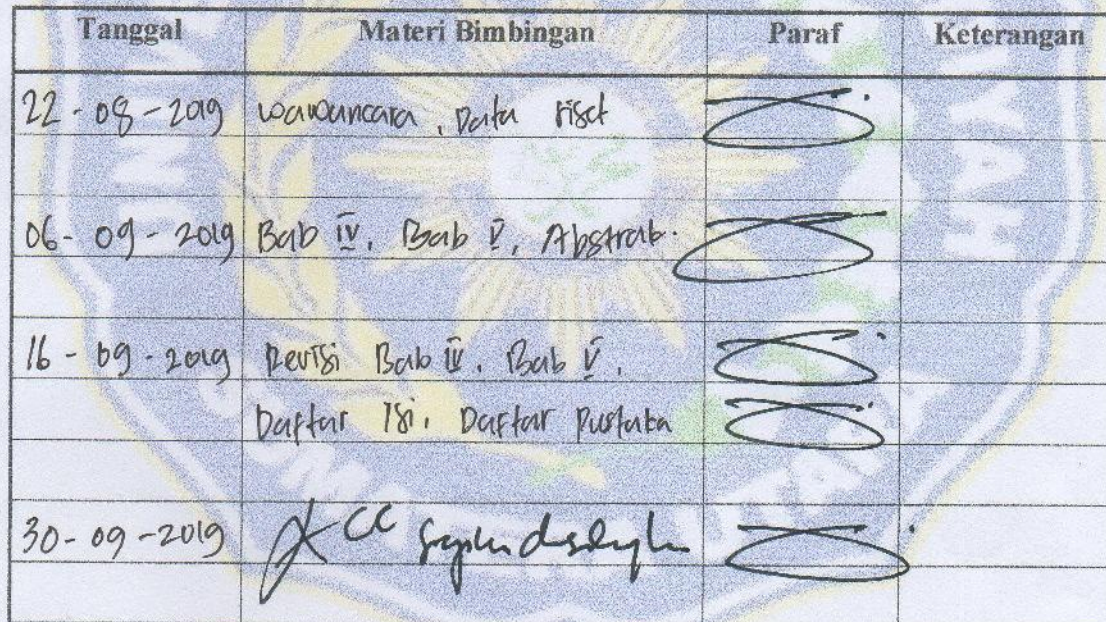 Tanggal Materi Bimbingan Paraf Keterangan
22-08-2019 Wawancara, Data riset
06-09-2019 Bab IV, Bab V, Abstrak.
16-09-2019 Revisi Bab IV, Bab V,
Daftar Isi, Daftar Pustaka
30-09-2019 ACC
UMATERA UTARA